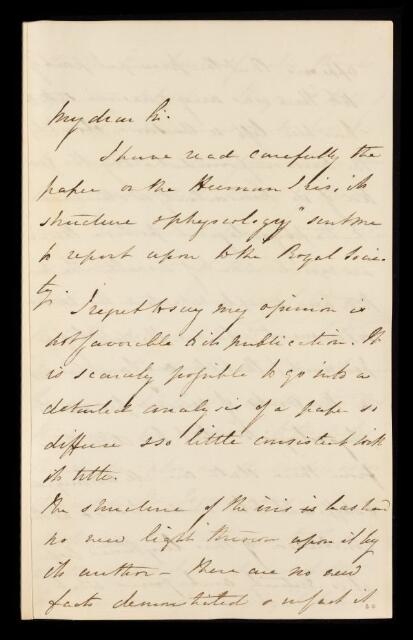 My dear Sir.
I have read carefully the
paper on the Human Iris, its
structure & physiology" sent me
to report upon to the Royal Socie-
ty.
I regret to say my opinion is
not favorable to its publication. It
is scarcely possible to go into a
detailed analysis of a paper so
diffuse & so little consistent with
its title.
The structure of the iris has had
no new light thrown upon it by
its author – there are no new
facts demonstrated & in fact it